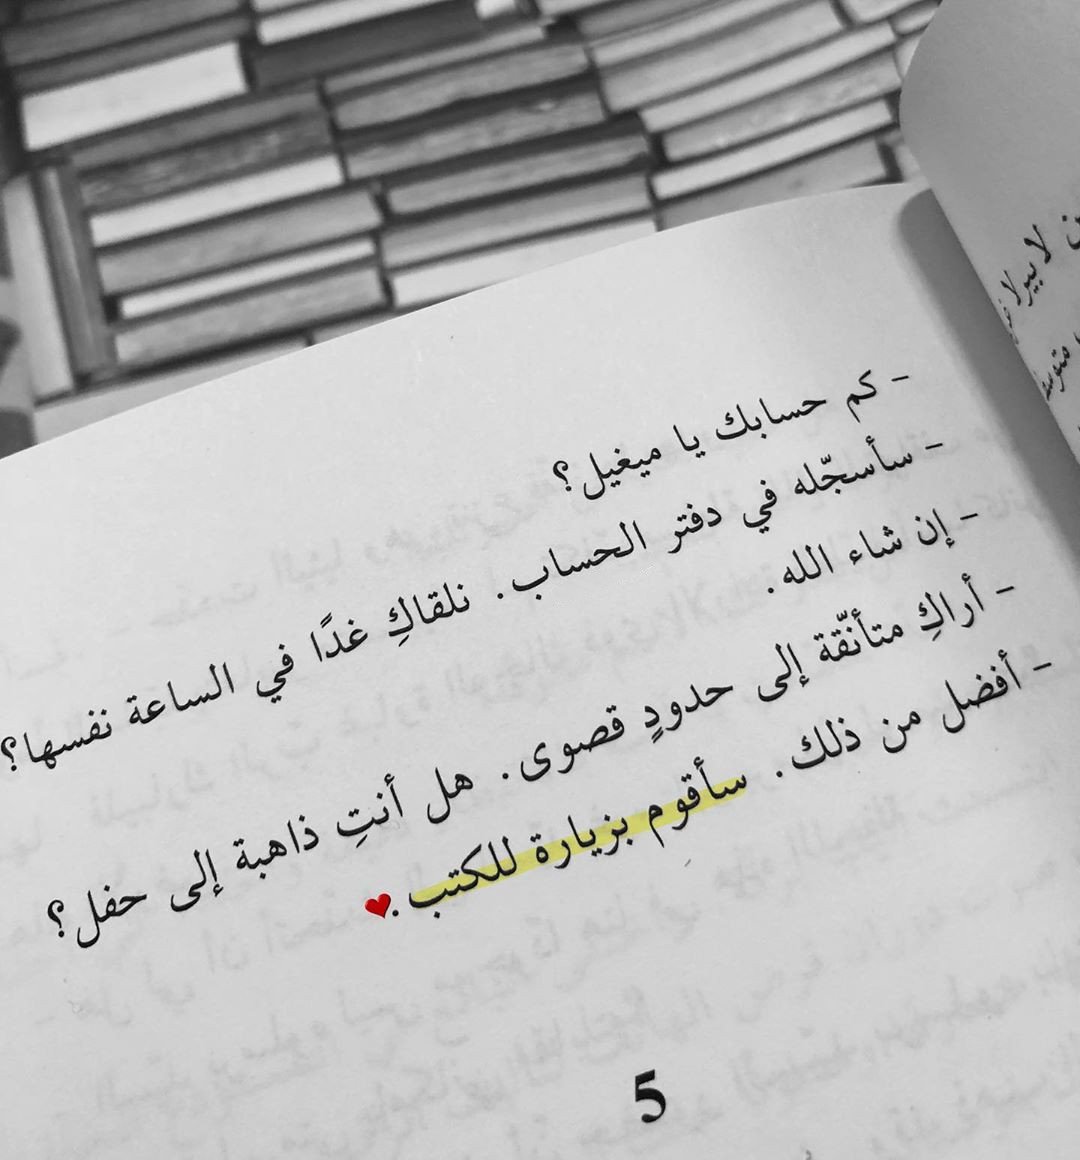 - كم حسابك يا ميغيل؟
- سأسجّله في دفتر الحساب. نلقاكِ غدًا في الساعة نفسها؟
- إن شاء الله.
- أراكِ متأنّقة إلى حدودٍ قصوى. هل أنتِ ذاهبة إلى حفل؟
- أفضل من ذلك. سأقوم بزيارة للكتب.
5